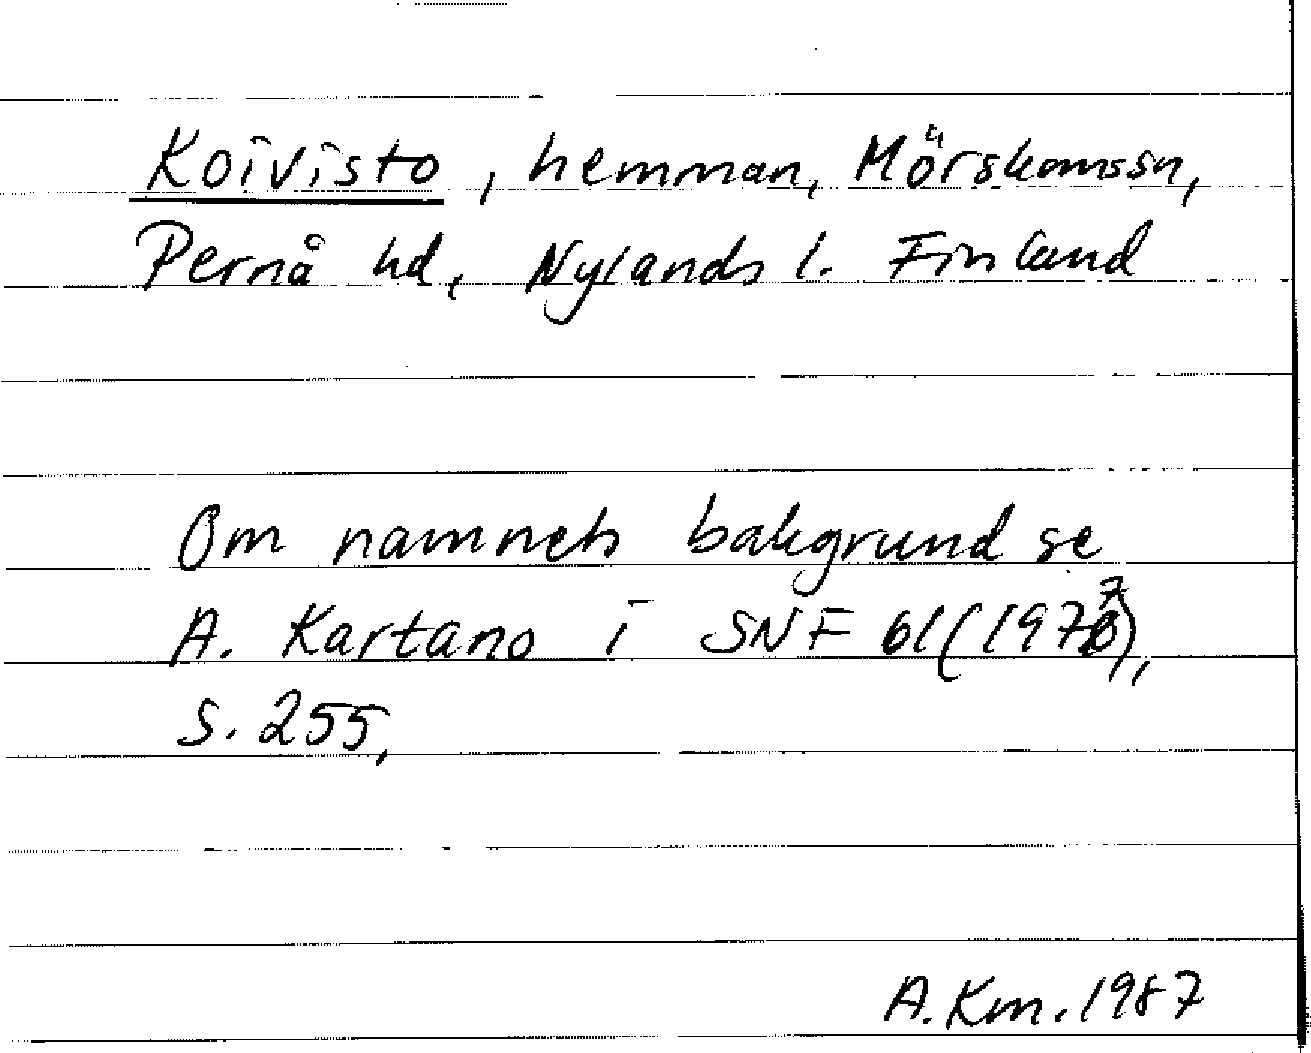 Koivisto, hemman, Mörskomssn,
Pernå hd, Nylands l. Finland
Om namnets bakgrund se
A. Kartano i SNF 61 (1977),
s. 255,
A.Km. 1987